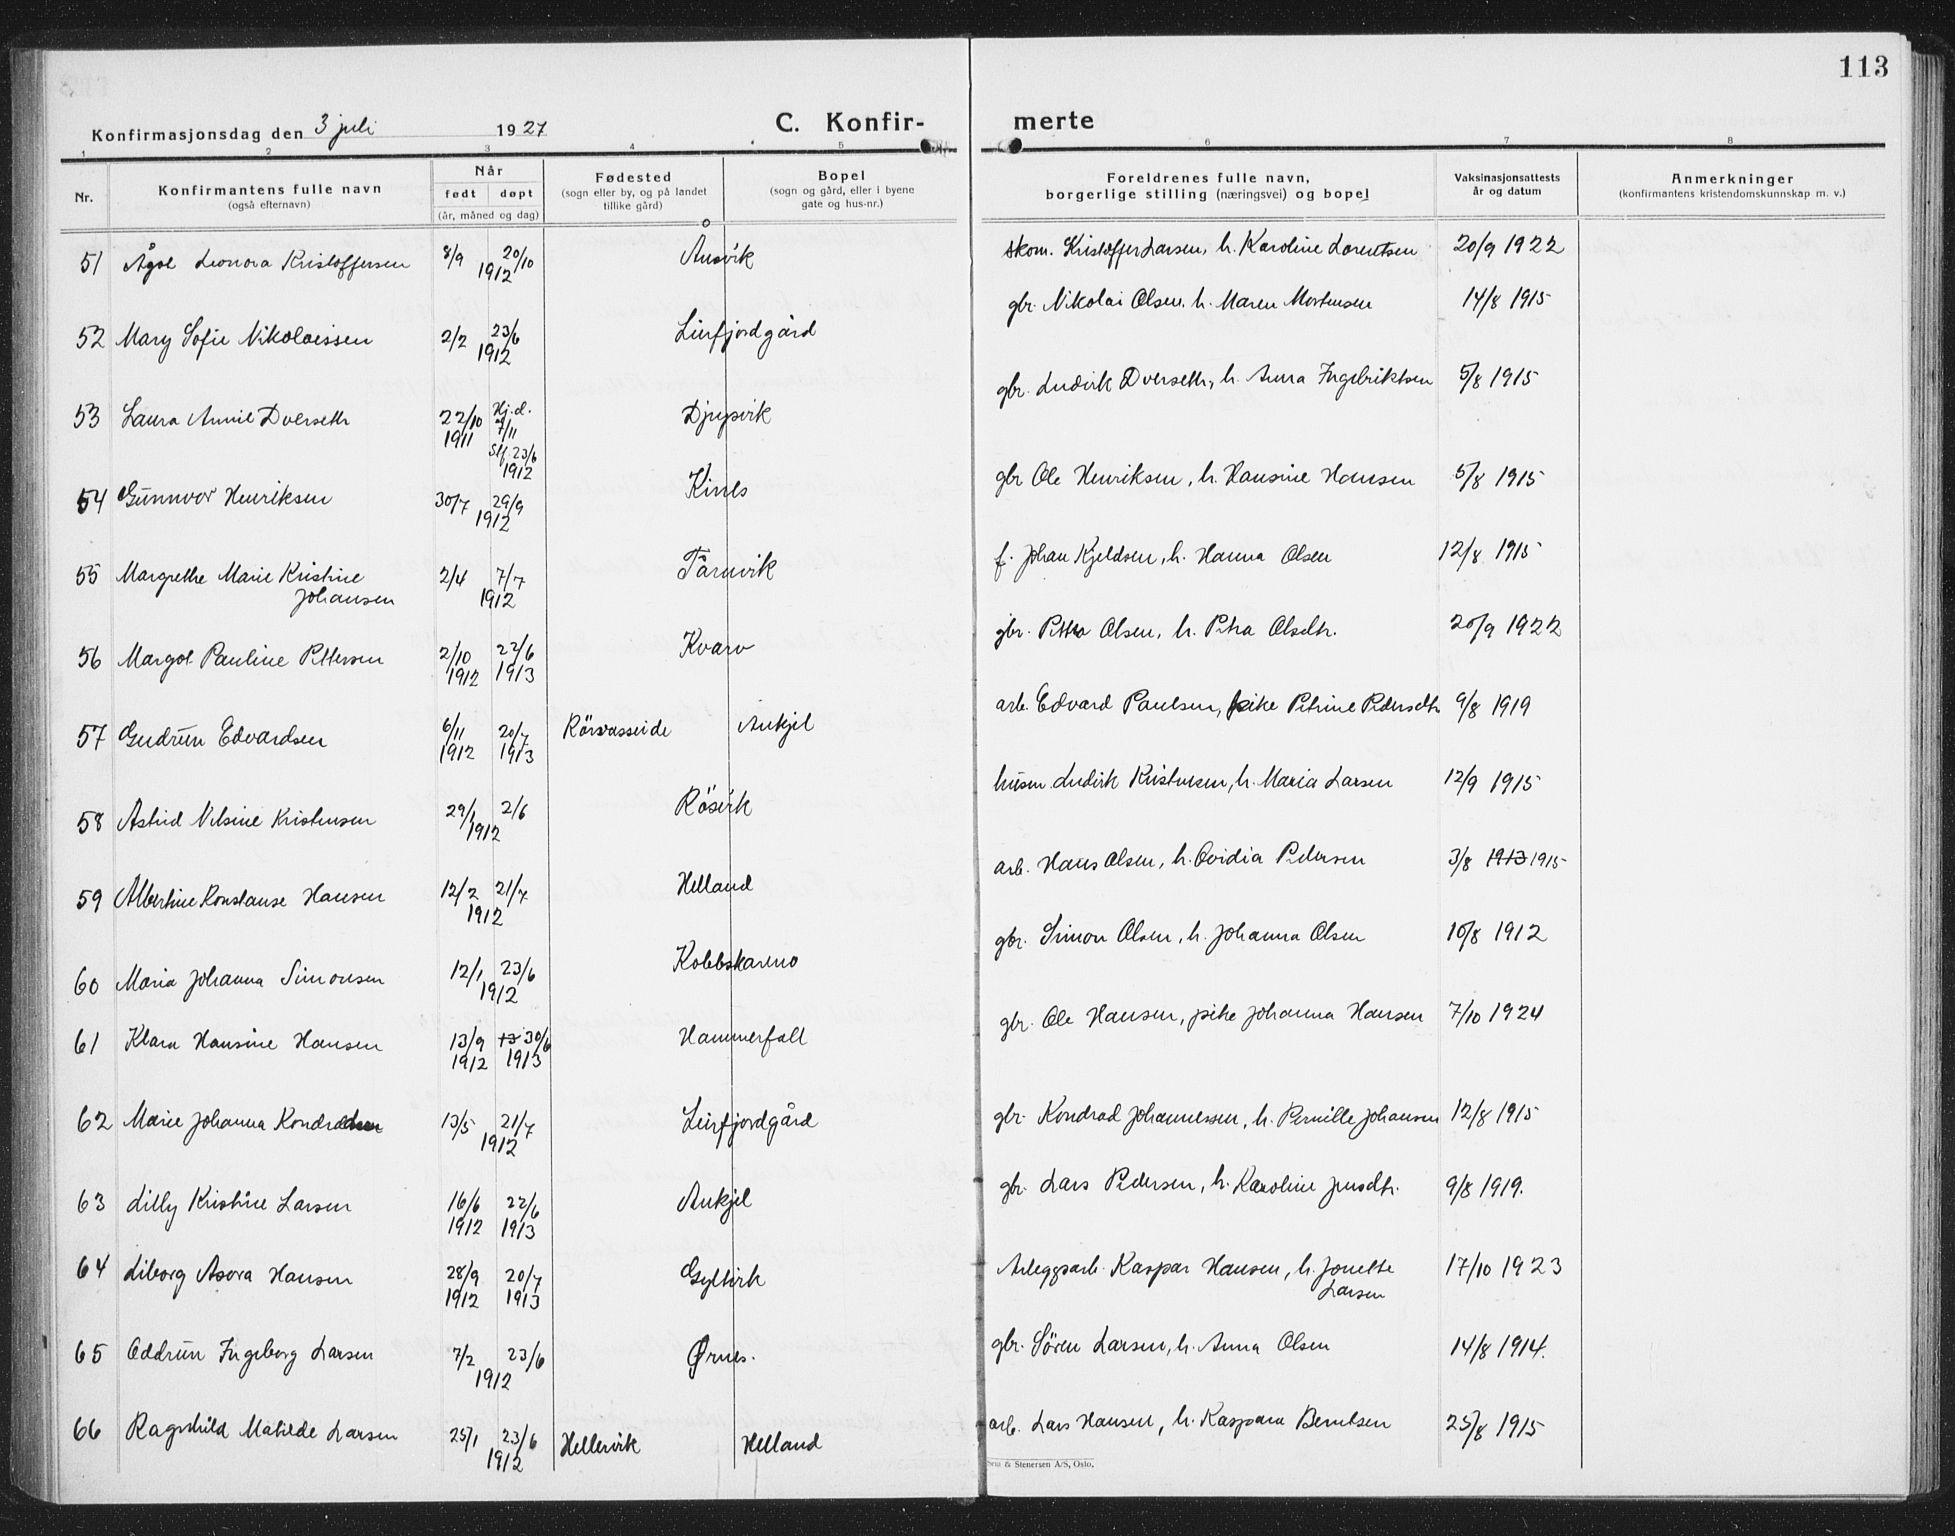 113
Konfirmasjonsdag den 3 juli 1927
C. Konfir- merte
1 2 3 4 5 6 7 8
Nr.
Konfirmantens fulle navn
(også efternavn)
Når
født døpt
(år, måned og dag)
Fødested
(sogn eller by, og på landet
tillike gård)
Bopel
(sogn og gård, eller i byene
gate og hus-nr.)
Foreldrenes fulle navn,
borgerlige stilling (næringsvei) og bopel
Vaksinasjonsattests
år og datum
Anmerkninger
(konfirmantens kristendomskunnskap m. v.)
51 Ågot Leonora Kristoffersen 8/9 20/10 1912 Ånsvik skom. Kristoffer Larsen, h. Karoline Lorentsen 20/9 1922
52 Mary Sofie Nikolaissen 2/2 23/6 1912 Leirfjordgård gbr. Nikolai Olsen, h. Maren Mortensen 14/8 1915
53 Laura Annie Dverseth 22/10 1911 Hj.d. 7/11 Stf. 23/6 1912 Djupvik gbr. Ludvik Dverseth, h. Anna Ingebriktsen 5/8 1915
54 Gunnvor Henriksen 30/7 29/9 1912 Kines gbr Ole Henriksen, h. Hansine Hansen 5/8 1915
55 Margrethe Marie Kristine
Johansen 2/4 7/7 1912 Tårnvik f. Johan Kjeldsen, h. Hanna Olsen 12/8 1915
56 Margot Pauline Pettersen 2/10 1912 22/6 1913 Kvarv gbr. Petter Olsen, h. Petra Olsdtr. 20/9 1922
57 Gudrun Edvardsen 6/11 1912 20/7 1913 Rörvasseide Ankjel arb. Edvard Paulsen, pike Petrine Pedersdtr 9/8 1919
58 Astrid Nilsine Kristensen 29/1 2/6 1912 Rösvik husm. Ludvik Kristensen, h. Maria Larsen 12/9 1915
59 Albertine Konstanse Hansen 12/2 21/7 1912 Helland arb. Hans Olsen, h. Ovidia Pedersen 3/8 1913 1915
60 Maria Johanna Simonsen 12/1 23/6 1912 Kobbskarmo gbr. Simon Olsen, h. Johanna Olsen 10/8 1912
61 Klara Hansine Hansen 13/9 1912 13 30/6 1913 Hammerfall gbr. Ole Hansen, pike Johanna Hansen 7/10 1924
62 Marie Johanna Kondradsen 13/5 21/7 1912 Leirfjordgård gbr. Kondrad Johannessen, h. Pernille Johansen 12/8 1915
63 Lilly Kristine Larsen 16/6 1912 22/6 1913 Ankjel gbr. Lars Pedersen, h. Karoline Jensdtr. 9/8 1919.
64 Liborg Asora Hansen 28/9 1912 20/7 1913 Gyltvik Anleggsarb. Kaspar Hansen, h. Jonette
Larsen 17/10 1923
65 Oddrun Ingeborg Larsen 7/2 23/6 1912 Ørnes. gbr. Sören Larsen, h. Anna Olsen 14/8 1914.
66 Ragnhild Matilde Larsen 25/1 23/6 1912 Hellervik Helland arb. Lars Hansen, h. Kaspara Berntsen 25/8 1915
& Stenersen A/S, Oslo.